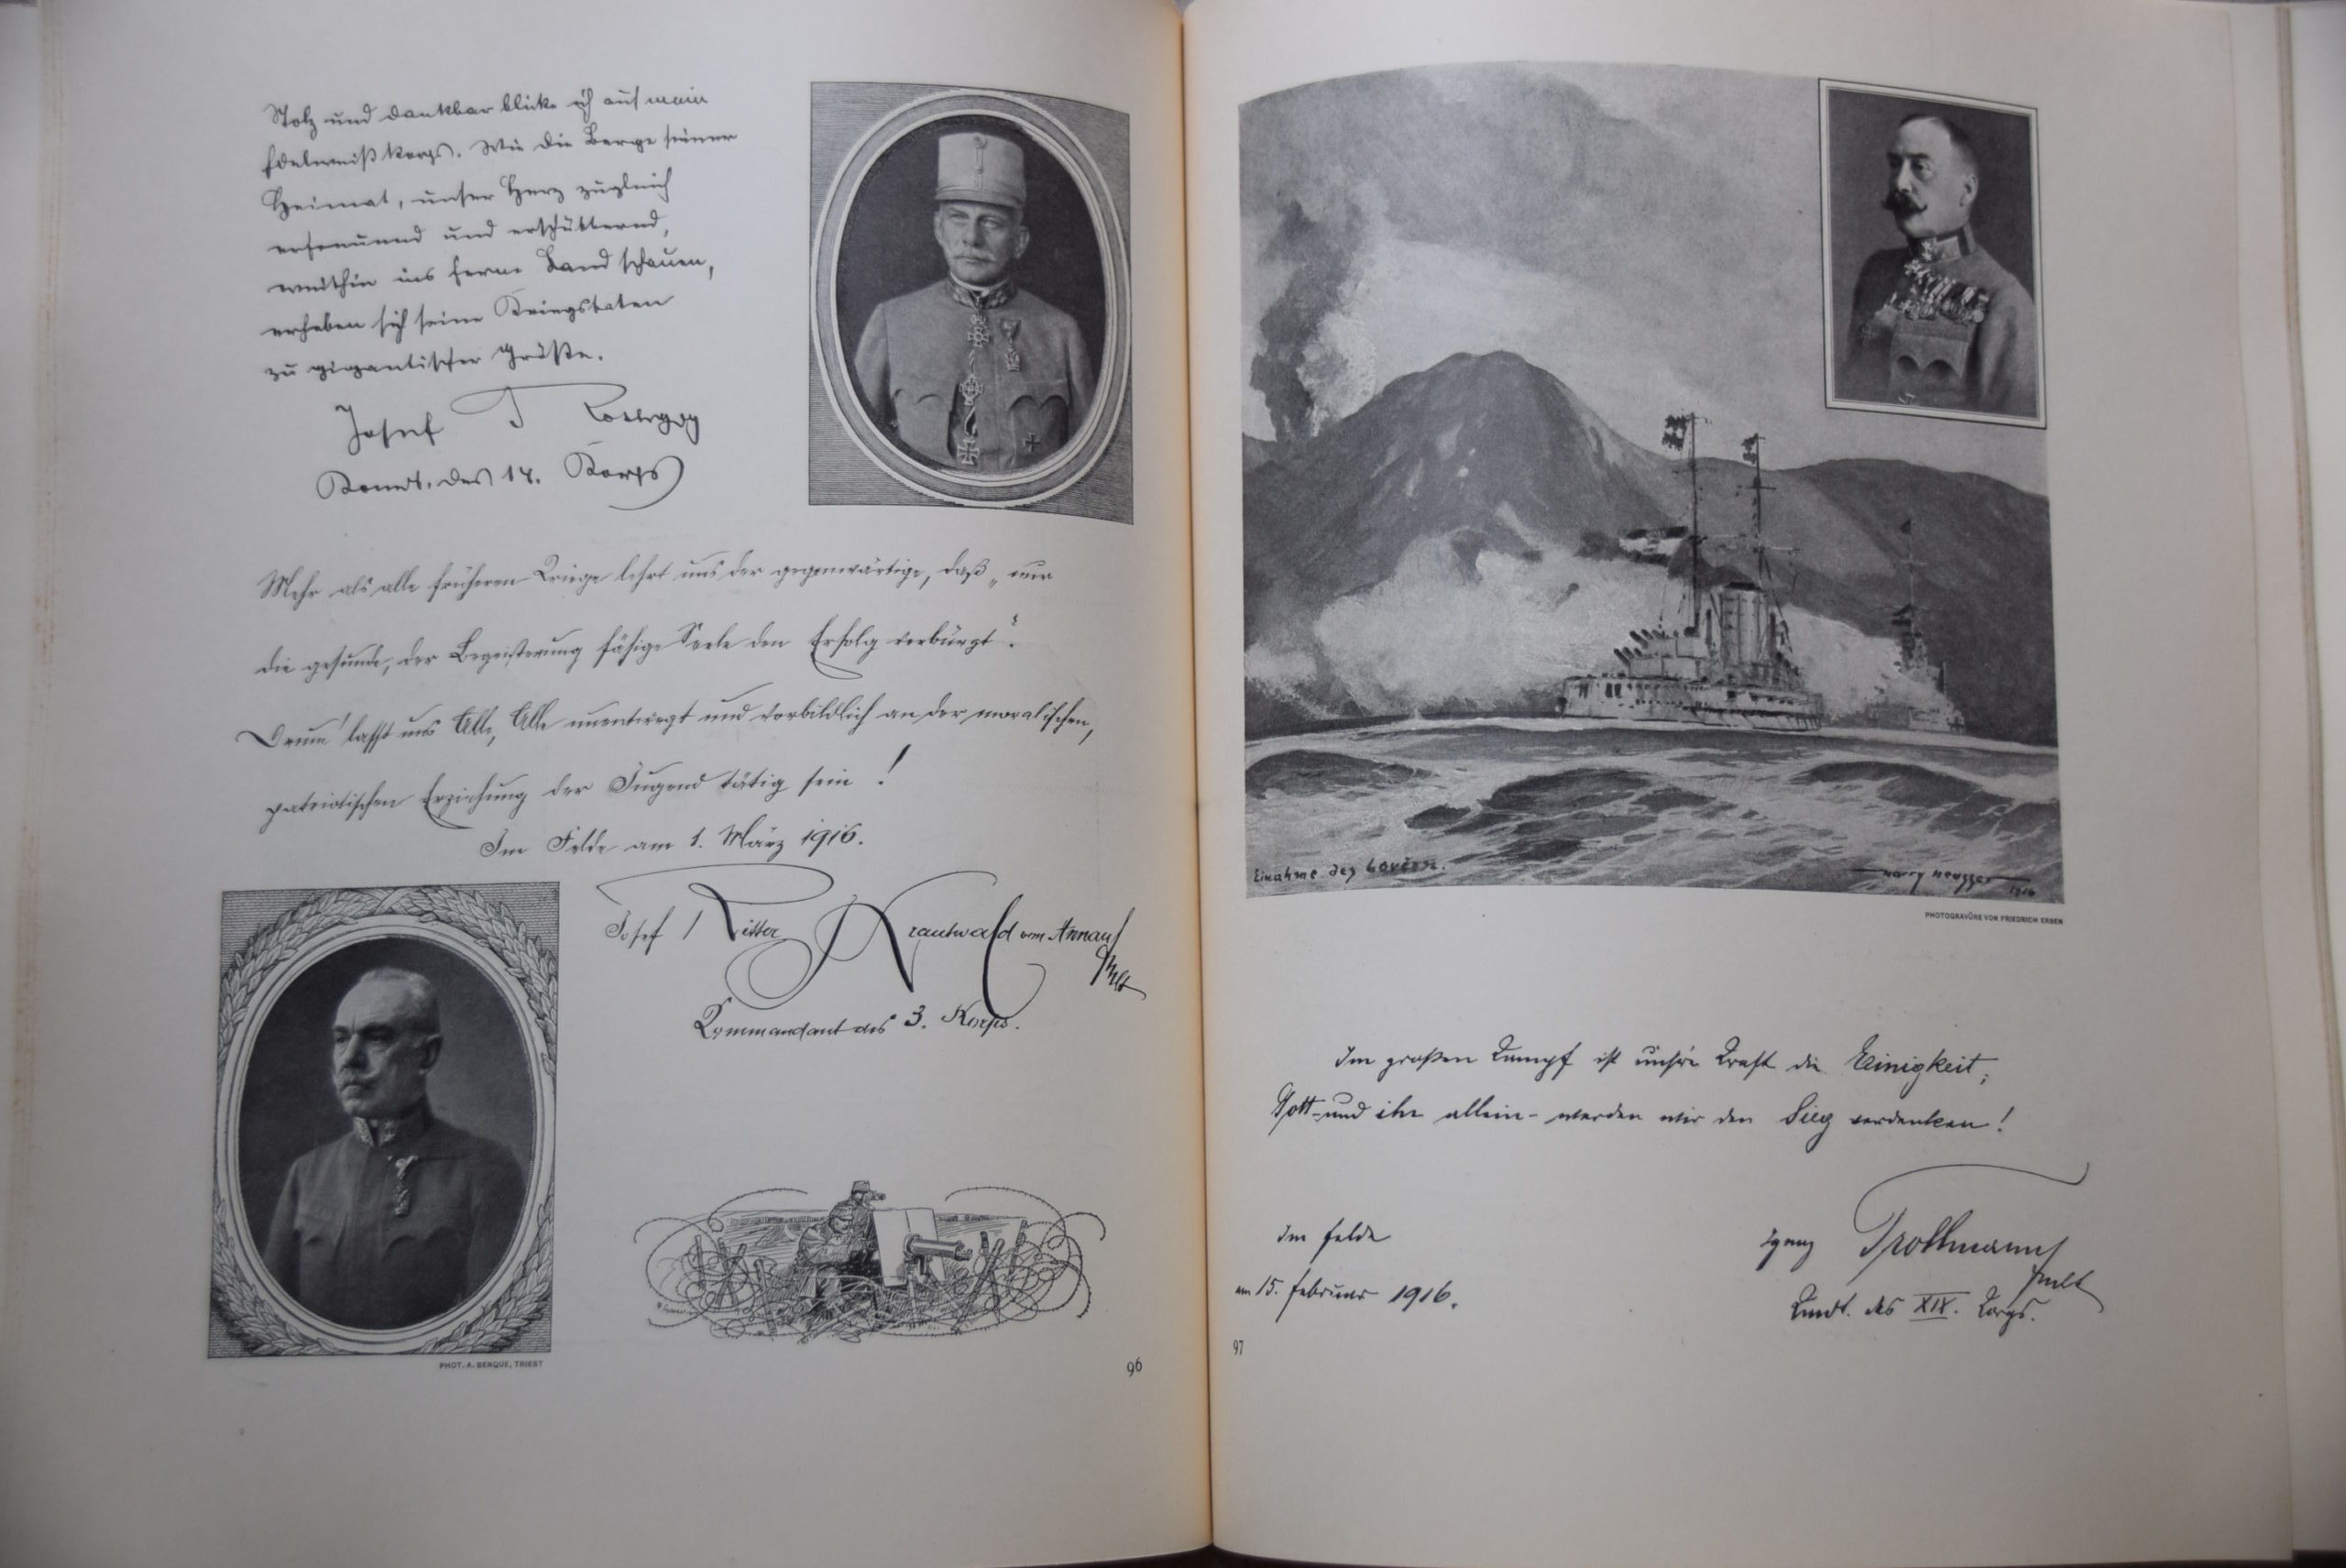 Stolz und dankbar blicke ich auf mein
Edelweißkorps. Wie die Berge seiner
Heimat, unser Herz zugleich
erfreuend und erschütternd,
weithin ins ferne Land schauen,
erheben sich seine Kriegstaten
zu gigantischer Größe.
Josef
Kommdt. des 14. Korps
Mehr als alle früheren Kriege lehrt uns der gegenwärtige, daß „nur
die gesunde, der Begeisterung fähige Seele den Erfolg verbürgt“.
Drum' lasst uns Alle, Alle unentwegt und vorbildlich an der moralischen,
patriotischen Erziehung der Jugend tätig sein!
Im Felde am 1. März 1916.
Josef Ritter Krautwald von Annau
FMLt
Kommandant des 3. Korps.
PHOT. A. BENQUE, TRIEST
96
Einahme des Lovčen.
Harry Heusser
1916
PHOTOGRAVÜRE VON FRIEDRICH ERBEN
Im großen Kampf ist unsre Kraft die Einigkeit;
Gott - und ihr allein - werden wir den Sieg verdanken!
Im Felde
am 15. Februar 1916.
Ignaz Trollmann
Fmlt
Kmdt. des XIX. Korps.
97